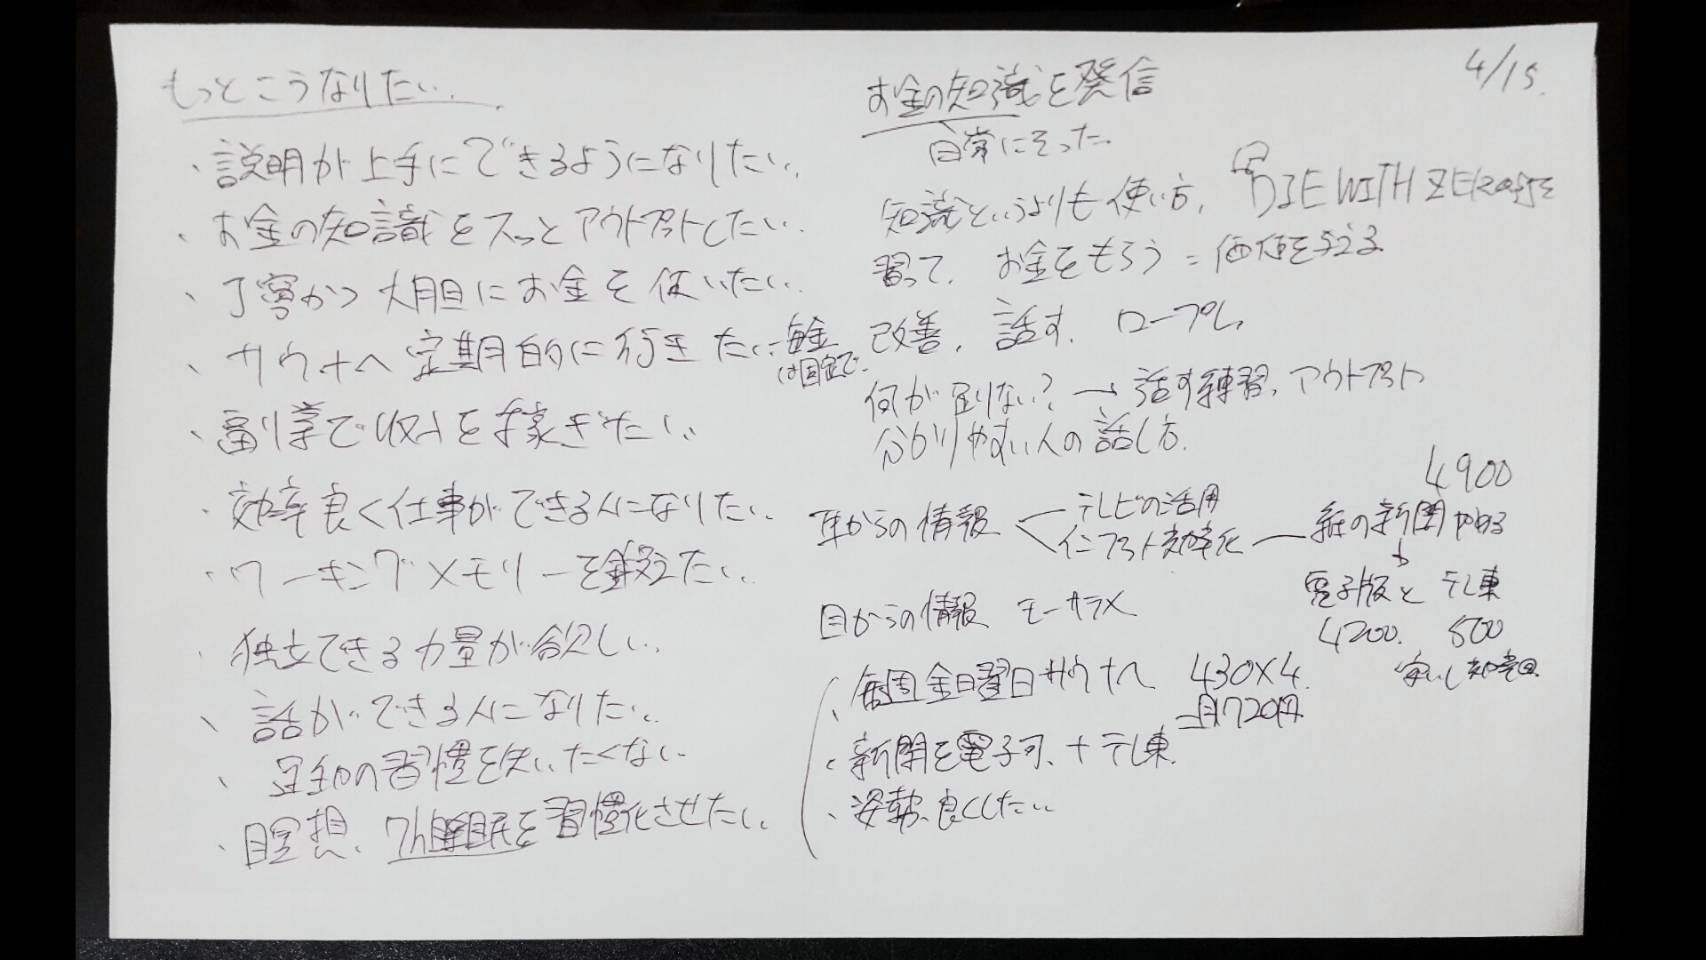 4/15.
もっとこうなりたい.
・説明が上手にできるようになりたい.
・お金の知識をスッとアウトプットしたい.
・丁寧かつ大胆にお金を使いたい.
・サウナへ定期的に行きたい 毎金
は固定で.
・副業で収入を稼ぎたい
・効率良く仕事ができる人になりたい
・ワーキングメモリーを鍛えたい.
・独立できる力量が欲しい.
・話ができる人になりたい.
・運動の習慣を失いたくない
・瞑想、7h睡眠を習慣化させたい.
お金の知識を発信
日常にそった.
知識というよりも使い方, DIE WITH ZERO
習って. お金をもらう = 価値を与える
改善, 話す. ロープレ
何が足りない? → 話す練習, アウトプット
分かりやすい人の話し方.
耳からの情報 テレビの活用
インプット効率化 ― 紙の新聞やめる
4900
電子版と テレ東
4200. 500
目からの情報 モーサテ
・毎週金曜日サウナへ 430×4.
=月1720円.
・新聞を電子可、+テレ東.
・姿勢、良くしたい